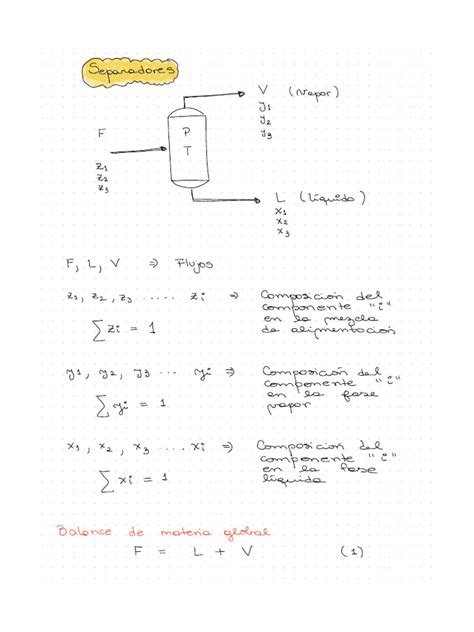 Separadores
V (vapor)
y1
y2
y3
F
P
T
z1
z2
z3
L (líquido)
x1
x2
x3
F, L, V ⇒ Flujos
z1, z2, z3 ..... zi ⇒ Composición del
componente "i"
en la mezcla
de alimentación
∑ zi = 1
y1, y2, y3 ... yi ⇒ Composición del
componente "i"
en la fase
vapor
∑ yi = 1
x1, x2, x3 .... xi ⇒ Composición del
componente "i"
en la fase
líquida
∑ xi = 1
Balance de materia global
F = L + V (1)